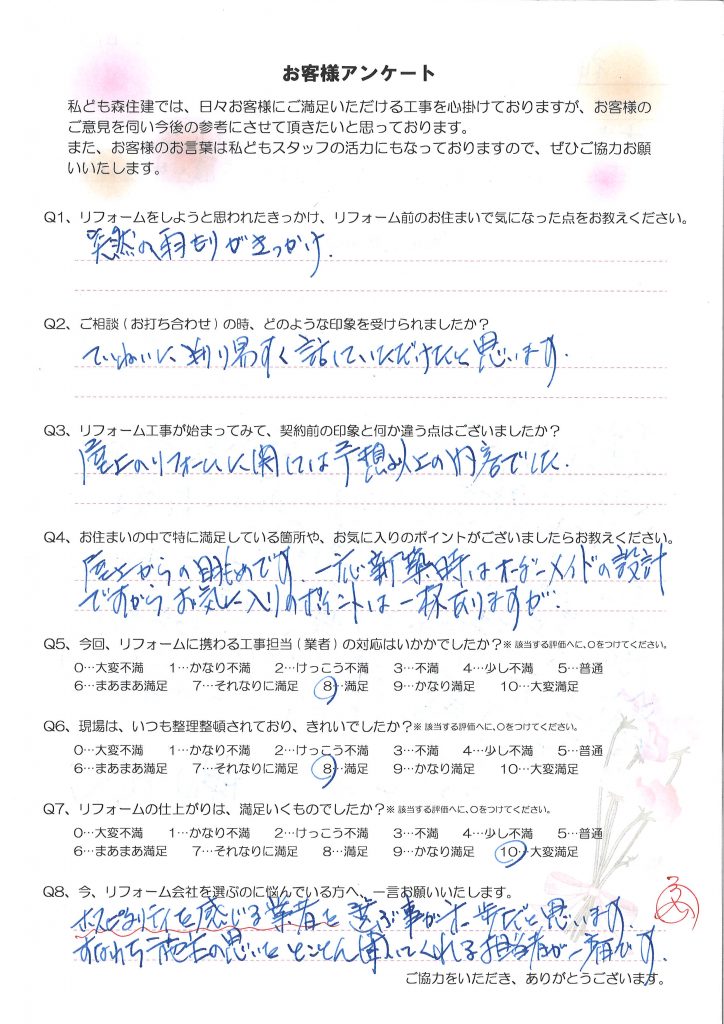 お客様アンケート
私ども森住建では、日々お客様にご満足いただける工事を心掛けておりますが、お客様の
ご意見を伺い今後の参考にさせて頂きたいと思っております。
また、お客様のお言葉は私どもスタッフの活力にもなっておりますので、ぜひご協力お願
いいたします。
Q1、リフォームをしようと思われたきっかけ、リフォーム前のお住まいで気になった点をお教えください。
突然の雨もりがきっかけ.
Q2、ご相談(お打ち合わせ)の時、どのような印象を受けられましたか?
ていねいに、判り易すく話していただけたと思います.
Q3、リフォーム工事が始まってみて、契約前の印象と何か違う点はございましたか?
屋上のリフォームに関しては予想以上の内容でした.
Q4、お住まいの中で特に満足している箇所や、お気に入りのポイントがございましたらお教えください。
屋上からの眺めです. 一応新築時はオーダーメイドの設計
ですからお気に入りのポイントは一杯ありますが…
Q5、今回、リフォームに携わる工事担当(業者)の対応はいかかでしたか?※該当する評価へに、○をつけてください。
0…大変不満 1…かなり不満 2…けっこう不満 3…不満 4…少し不満 5…普通
6…まあまあ満足 7…それなりに満足 8…満足 9…かなり満足 10…大変満足
Q6、現場は、いつも整理整頓されており、きれいでしたか?※該当する評価へに、○をつけてください。
0…大変不満 1…かなり不満 2…けっこう不満 3…不満 4…少し不満 5…普通
6…まあまあ満足 7…それなりに満足 8…満足 9…かなり満足 10…大変満足
Q7、リフォームの仕上がりは、満足いくものでしたか?※該当する評価へに、○をつけてください。
0…大変不満 1…かなり不満 2…けっこう不満 3…不満 4…少し不満 5…普通
6…まあまあ満足 7…それなりに満足 8…満足 9…かなり満足 10…大変満足
Q8、今、リフォーム会社を選ぶのに悩んでいる方へ、一言お願いいたします。
ホスピタリティを感じる業者を選ぶ事が才一歩だと思います.
すなわち施主の思いをとことん聞いてくれる担当者が一番です.
ご協力をいただき、ありがとうございます。